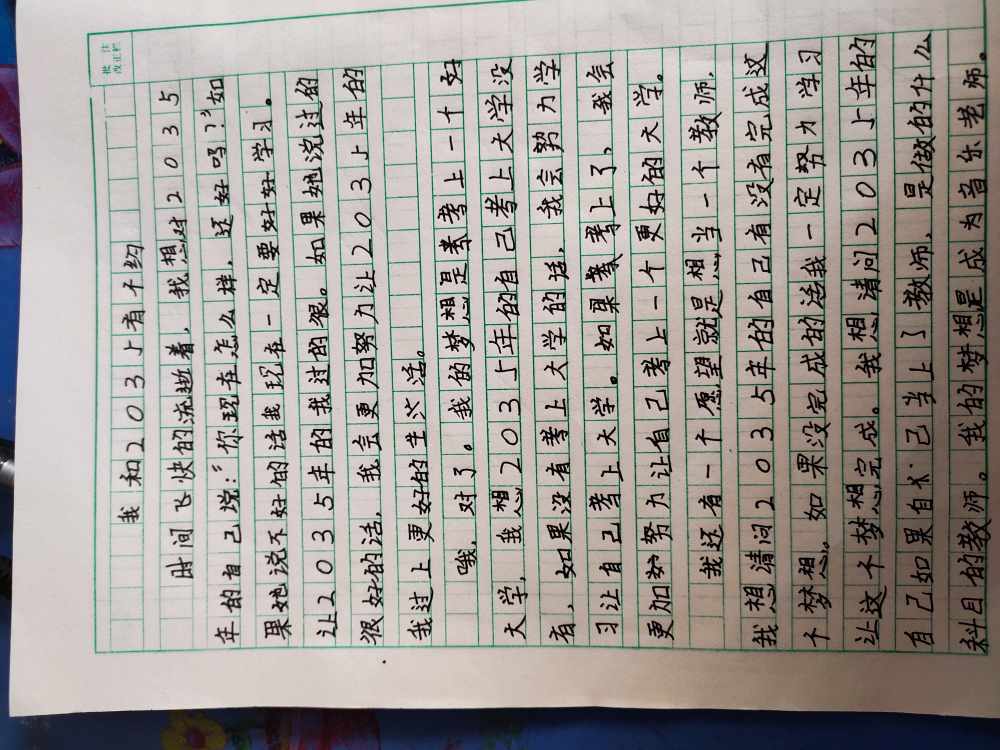 批注
改正栏
我和2035有个约
时间飞快的流逝着，我想对2035
年的自己说：“你现在怎么样，还好吗？”如
果她说不好的话我现在一定要好好学习。
让2035年的我过的很。如果她说过的
很好的话，我会更加努力让2035年的
我过上更好的生活。
哦，对了。我的梦想是考上一个好
大学，我想2035年的自己考上大学没
有，如果没有考上大学的话，我会努力学
习让自己考上大学。如果考上了，我会
更加努力让自己考上一个更好的大学。
我还有一个愿望就是想当一个教师，
我想清问2035年的自己有没有完成这
个梦想。如果没完成的活我一定努力学习
让这个梦想完成。我想清问2035年的
自己如果自己当上了教师，是做的什么
科目的教师。我的梦想是成为音乐老师。